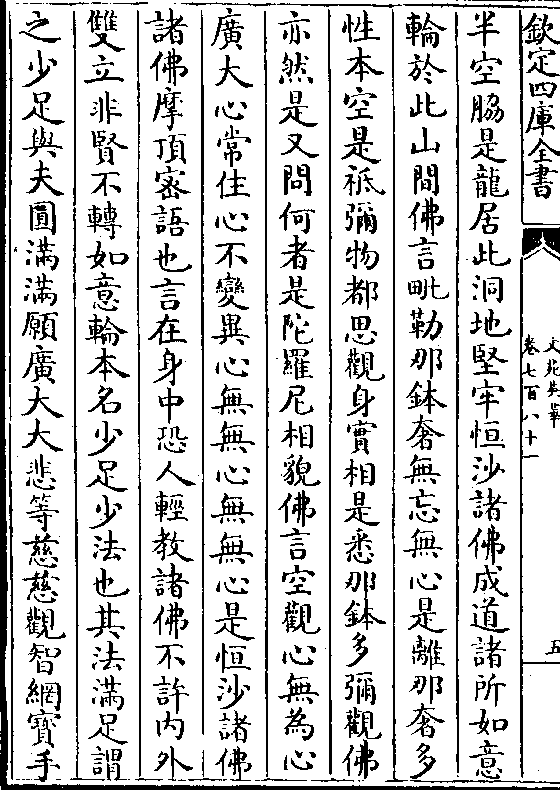 欽定四庫全書
文苑英華
卷七百八十一
五
半空脇是龍居此洞地堅牢恒沙諸佛成道諸所如意
輪於此山間佛言毗勒那鉢奢無忘無心是離那奢多
性本空是祇彌物都思觀身實相是悉那鉢多彌觀佛
亦然是又問何者是陀羅尼相貌佛言空觀心無為心
廣大心常住心不變異心無無心無無心是恒沙諸佛
諸佛摩頂宻語也言在身中恐人輕教諸佛不許内外
雙立非賢不轉如意輪本名少足少法也其法滿足謂
之少足與夫圓滿滿願廣大大悲等慈慈觀智網寶手